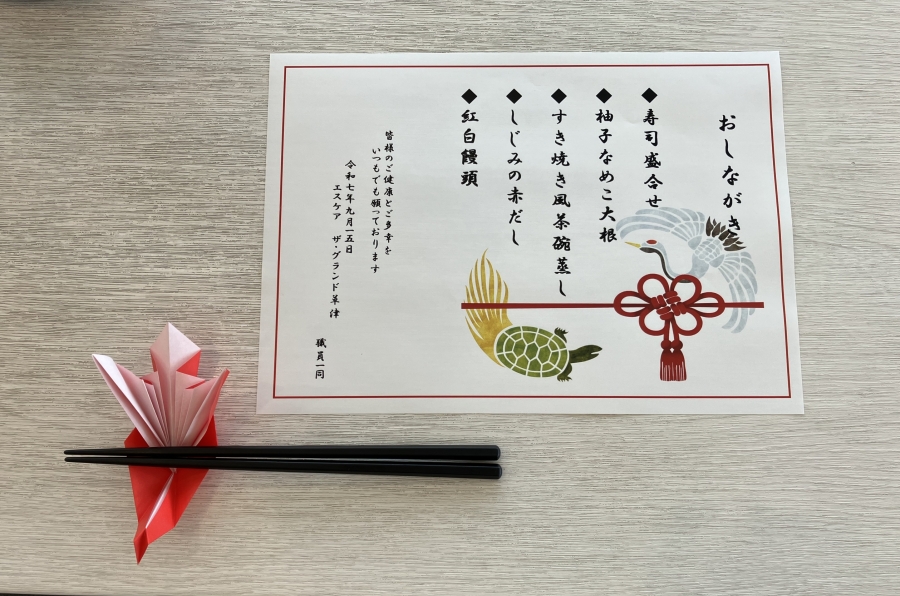 おしながき
◆寿司盛合せ
◆柚子なめこ大根
◆すき焼き風茶碗蒸し
◆しじみの赤だし
◆紅白饅頭
皆様のご健康とご多幸を
いつもでも願っております
令和七年九月一五日
エスケア ザ・グランド草津
職員一同